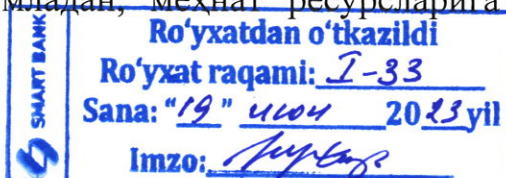 младан, меҳнат ресурсларига
SMART BANK
Ro'yxatdan o'tkazildi
Ro'yxat raqami: I-33
Sana: "19" июн 2023 yil
Imzo: